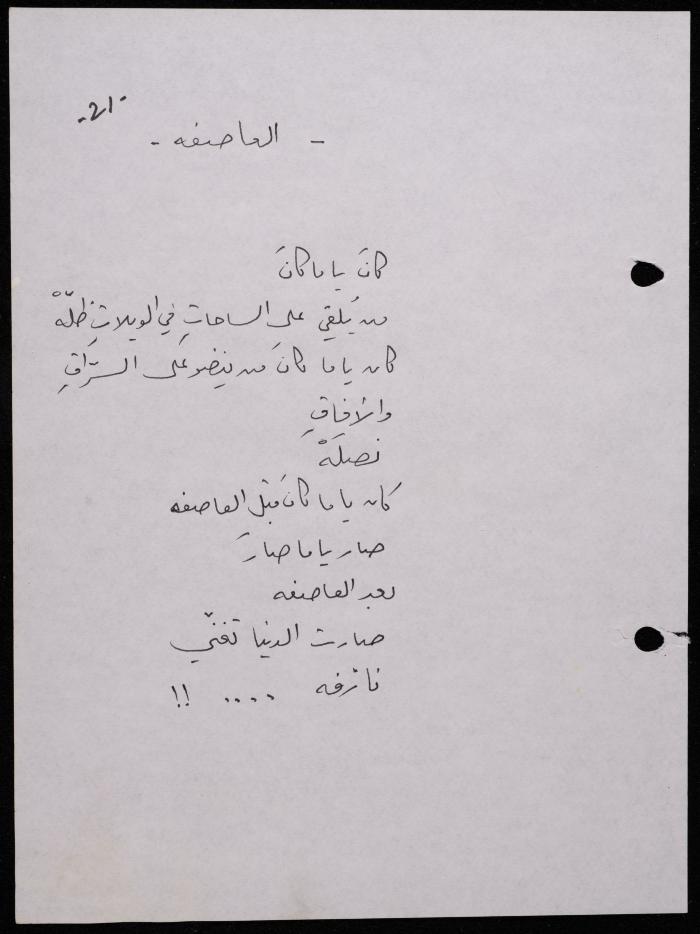 -21-
- العاصفه -
كانَ يا ما كانَ
من يُلقي على الساحاتِ في الويلاتِ ظلّهْ
كان يا ما كانَ من ينضو على السرّاقِ
والأفاقِ
نصلَهْ
كان يا ما كانَ قبل العاصفه
صار يا ما صارَ
بعد العاصفه
صارت الدنيا تغنّي
نازفه .... !!